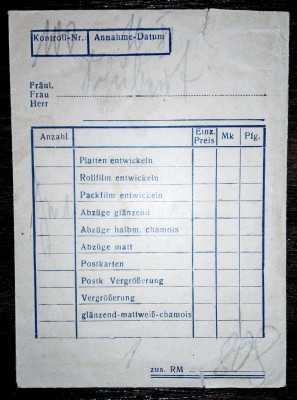 Kontroll-Nr. Annahme-Datum
Fräul.
Frau
Herr
Anzahl Einz. Preis Mk Pfg.
Platten entwickeln
Rollfilm entwickeln
Packfilm entwickeln
Abzüge glänzend
Abzüge halbm. chamois
Abzüge matt
Postkarten
Postk Vergrößerung
Vergrößerung
glänzend-mattweiß-chamois
zus. RM